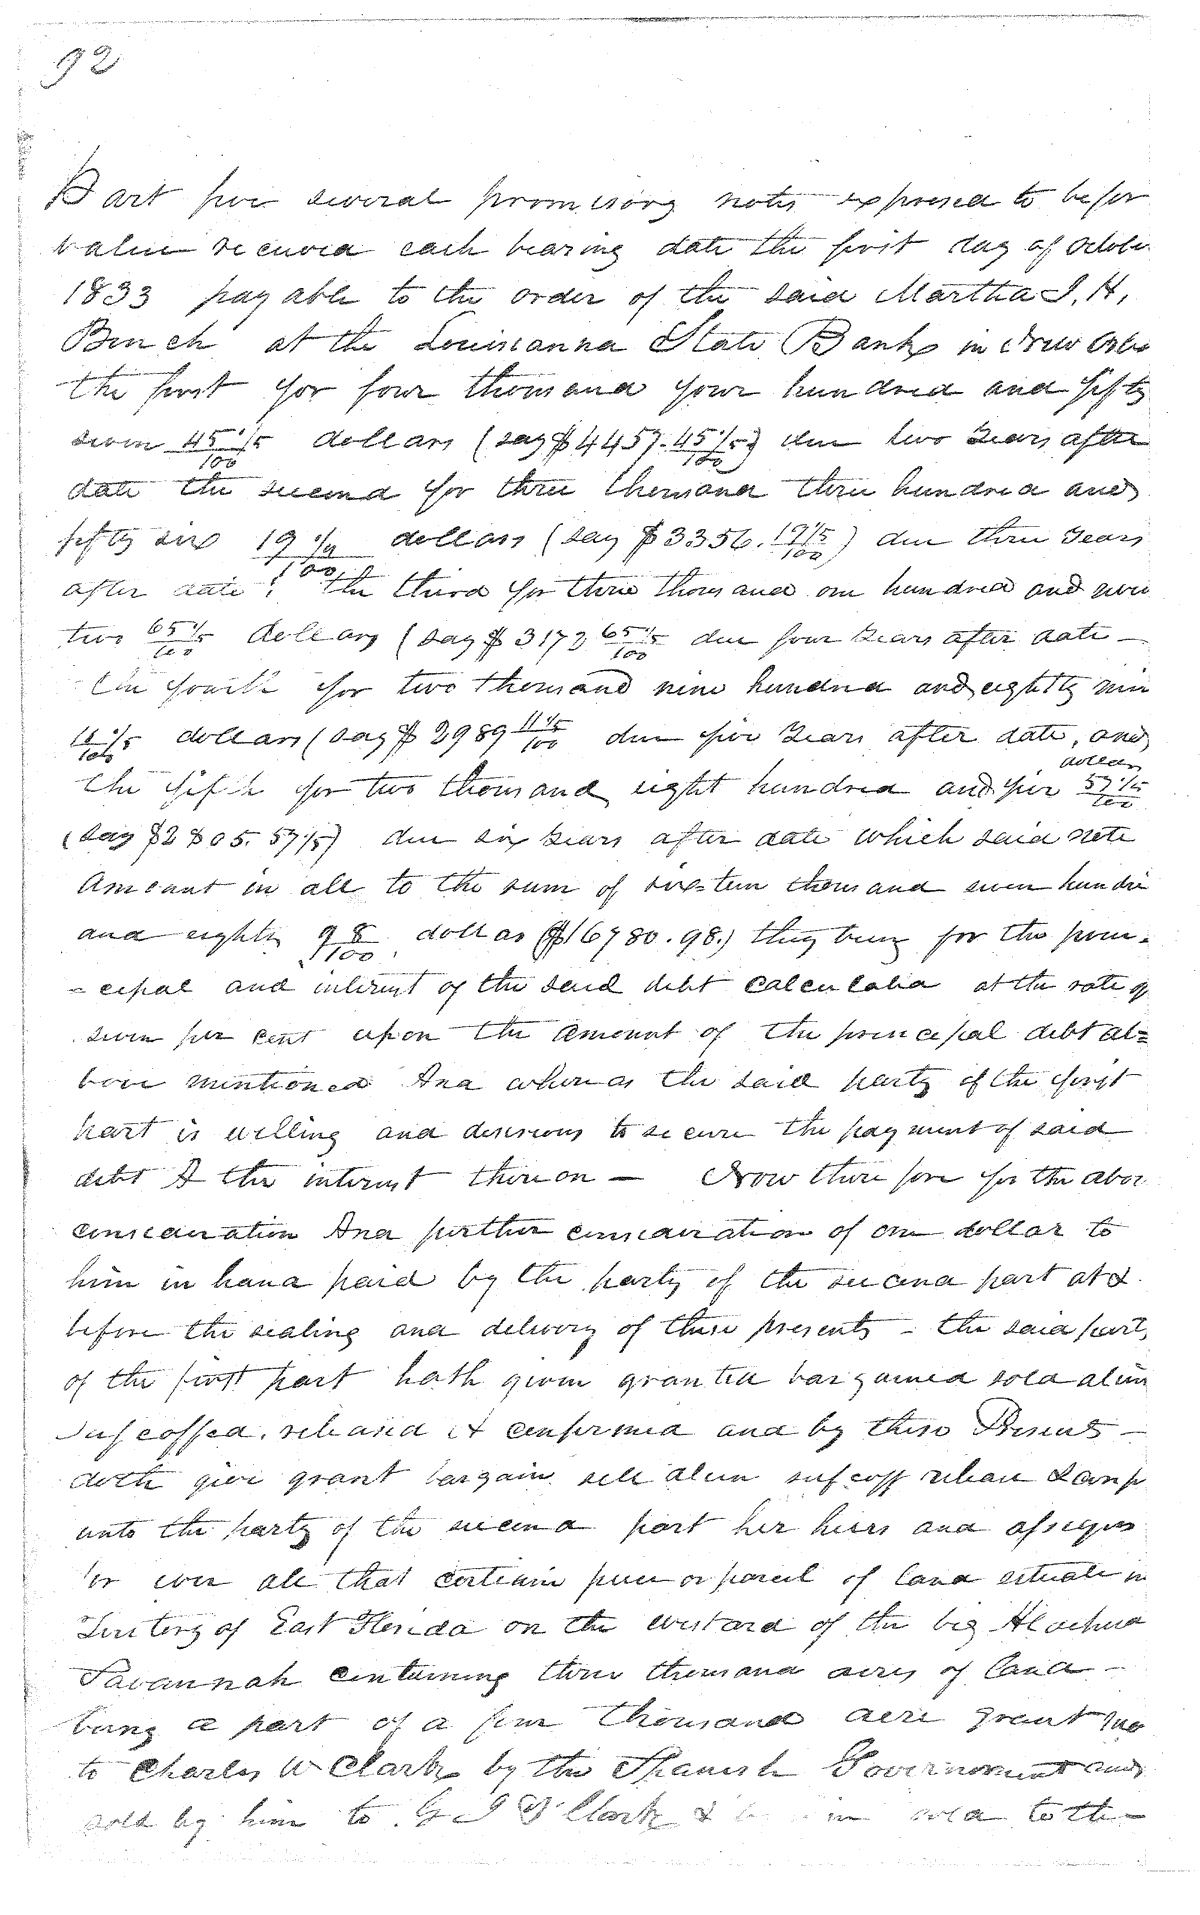 92
Part five several promissory notes expressed to be for
value received each bearing date the first day of Octobe
1833 payable to the order of the said Martha I. H.
Bunch at the Louisianna State Bank in New Orle
the first for four thousand four hundred and fifty
seven 45 1/5/100 dollars (say $4457.45 1/5/100) due two Years after
date the second for three thousand three hundred and
fifty six 19 1/5/100 dollars (say $3356.19 1/5/100) due three Years
after date; the third for three thousand one hundred and seven
two 65 1/5/100 dollars (say $3172 65 1/5/100 due four Years after date —
the fourth for two thousand nine hundred and eightty nin
11 1/5/100 dollars (say $2989 11 1/5/100 due five Years after date, and
the fifth for two thousand eight hundred and five 57 1/5/100 dollars
(say $2805.57 1/5) due six Years after date which said note
Amount in all to the sum of sixteen thousand seven hundre
and eighty 98/100 dollars ($16780.98.) they being for the prin-
-cipal and interest of the said debt calculated at the rate of
seven per cent upon the amount of the principal debt a=
bove mentioned And whereas the said party of the first
part is willing and desirous to secure the payment of said
debt & the interest thereon — Now therefore for the abov
consideration And further consideration of one dollar to
him in hand paid by the party of the second part at &
before the sealing and delivery of these presents – the said part
of the first part hath given granted bargained sold alien
enfeoffed, released & confirmed and by these Presents —
doth give grant bargain sell alien enfeoff release & conf
unto the party of the second part her heirs and assigns
for ever all that certain piece or parcel of land situate in
Territory of East Florida on the westard of the big Alachua
Savannah containing three thousand acres of land —
being a part of a five thousand acre grant
to Charles W Clark by the Spanish Government and
sold by him to G I F Clark & by him sold to the —